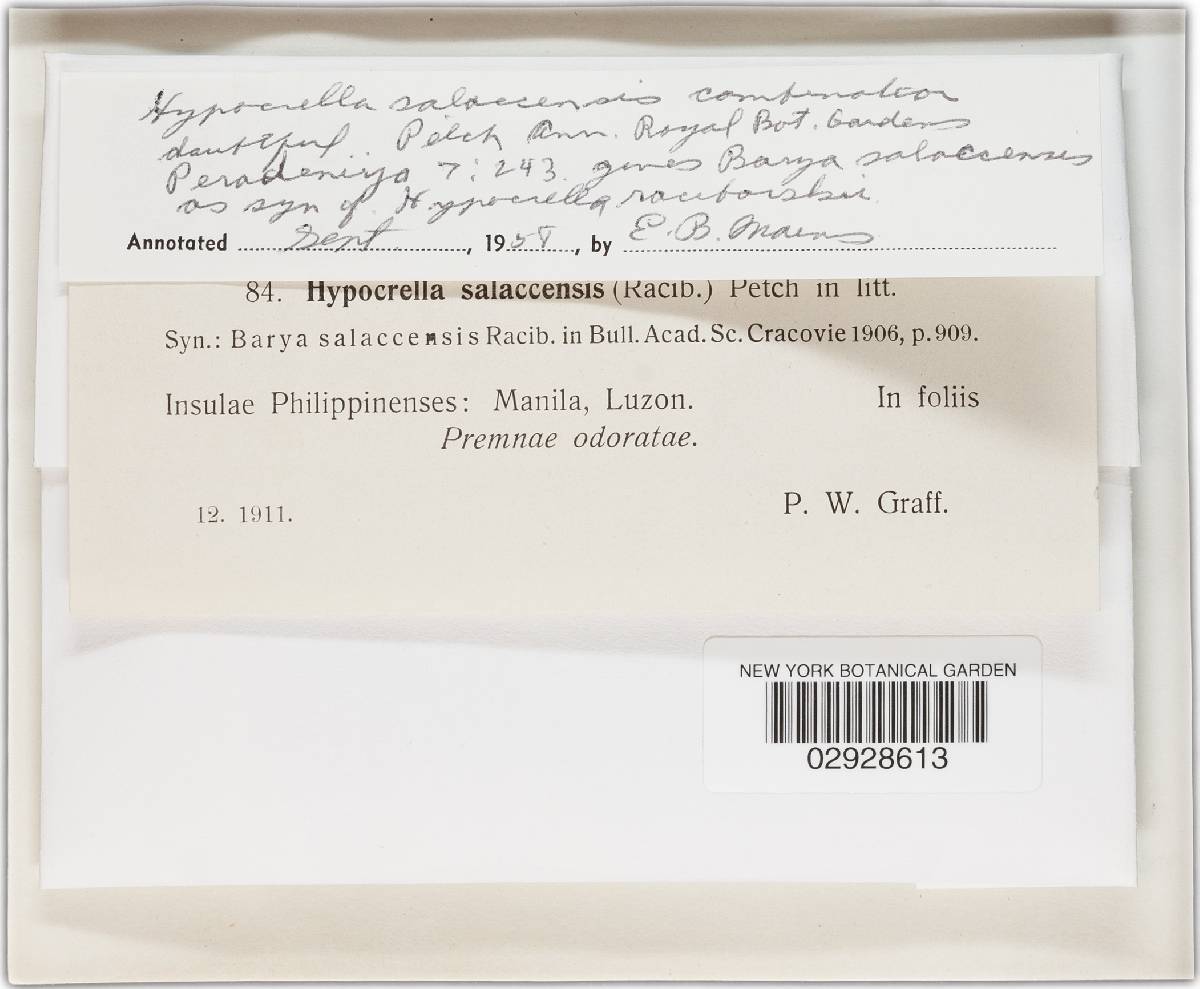 Hypocrella salaccensis combination
doubtful. Petch Ann. Royal Bot. Gardens
Peradeniya 7: 243. gives Barya salaccensis
as syn of. Hypocrella raciborskii.
Annotated Sept, 1958, by E. B. Mains
84. Hypocrella salaccensis (Racib.) Petch in litt.
Syn.: Barya salaccensis Racib. in Bull. Acad. Sc. Cracovie 1906, p. 909.
Insulae Philippinenses: Manila, Luzon. In foliis
Premnae odoratae.
12. 1911. P. W. Graff.
NEW YORK BOTANICAL GARDEN
02928613